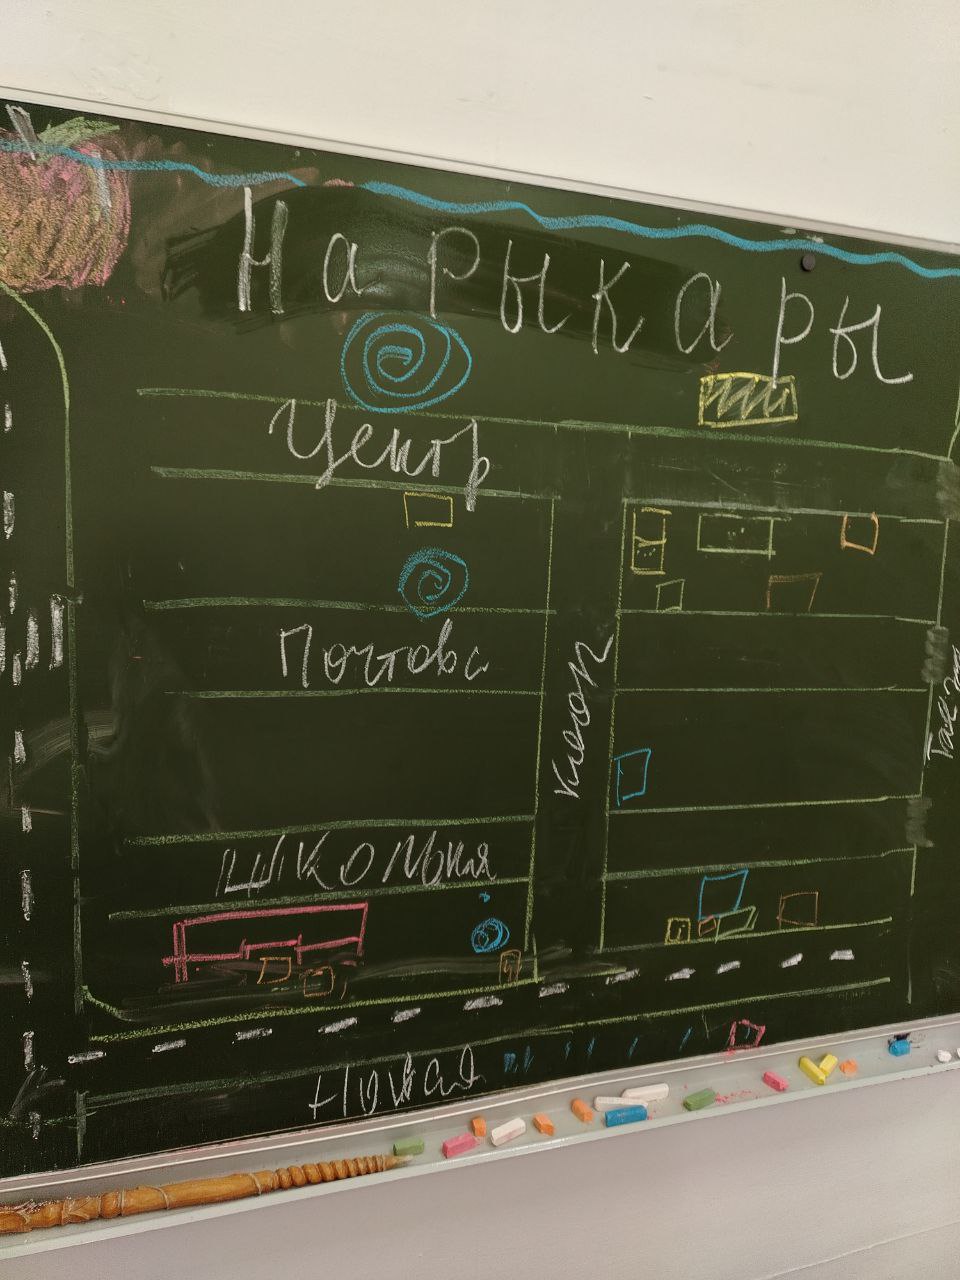 Нарыкары
Центр
Почтова
Школьная
новая